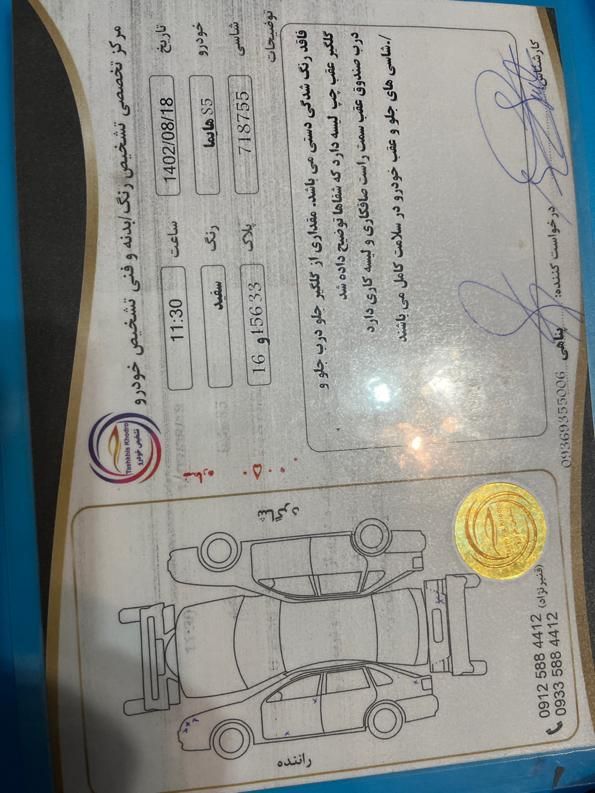 مرکز تخصصی تشخیص رنگ/بدنه و فنی تشخیص خودرو
Tashkhis Khodro
تشخیص خودرو
تاریخ 1402/08/18 ساعت 11:30
خودرو هایما S5 رنگ سفید
شاسی 718755 پلاک 16 و 15633
توضیحات
فاقد رنگ شدگی دستی می باشد. مقداری از گلگیر جلو درب جلو و
گلگیر عقب چپ لیسه دارد که شفاها توضیح داده شد
درب صندوق عقب سمت راست صافکاری و لیسه کاری دارد
./شاسی های جلو و عقب خودرو در سلامت کامل می باشند
کارشناس
درخواست کننده: پناهی 09369355006
شماره
راننده
0912 588 4412 (قنبرنژاد)
0933 588 4412